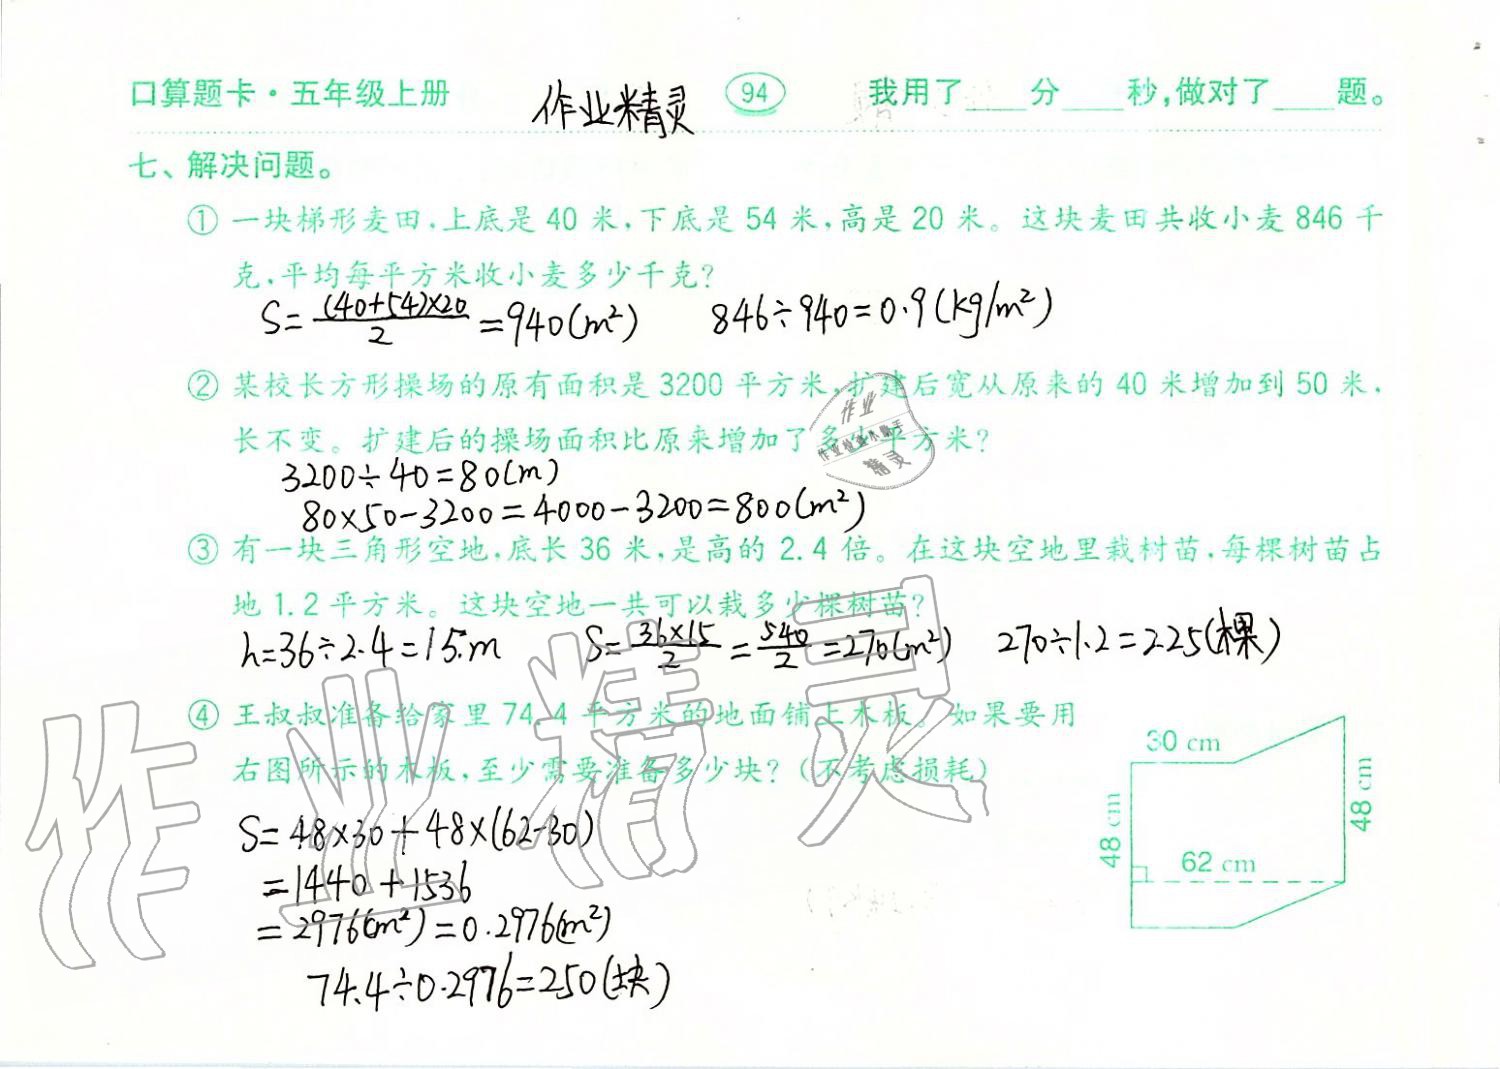 口算题卡·五年级上册
作业精灵
94
我用了____分____秒,做对了____题。
七、解决问题。
① 一块梯形麦田,上底是 40 米,下底是 54 米,高是 20 米。这块麦田共收小麦 846 千
克,平均每平方米收小麦多少千克?
S=(40+54)×20/2=940(m²) 846÷940=0.9(kg/m²)
② 某校长方形操场的原有面积是 3200 平方米,扩建后宽从原来的 40 米增加到 50 米,
长不变。扩建后的操场面积比原来增加了多少平方米?
作业
作业检查小助手
精灵
3200÷40=80(m)
80×50-3200=4000-3200=800(m²)
③ 有一块三角形空地,底长 36 米,是高的 2.4 倍。在这块空地里栽树苗,每棵树苗占
地 1.2 平方米。这块空地一共可以栽多少棵树苗?
h=36÷2.4=15m S=36×15/2=540/2=270(m²) 270÷1.2=225(棵)
④ 王叔叔准备给家里 74.4 平方米的地面铺上木板。如果要用
右图所示的木板,至少需要准备多少块?(不考虑损耗)
作业精灵
30 cm
48 cm
48 cm
62 cm
S=48×30+48×(62-30)
=1440+1536
=2976(cm²)=0.2976(m²)
74.4÷0.2976=250(块)